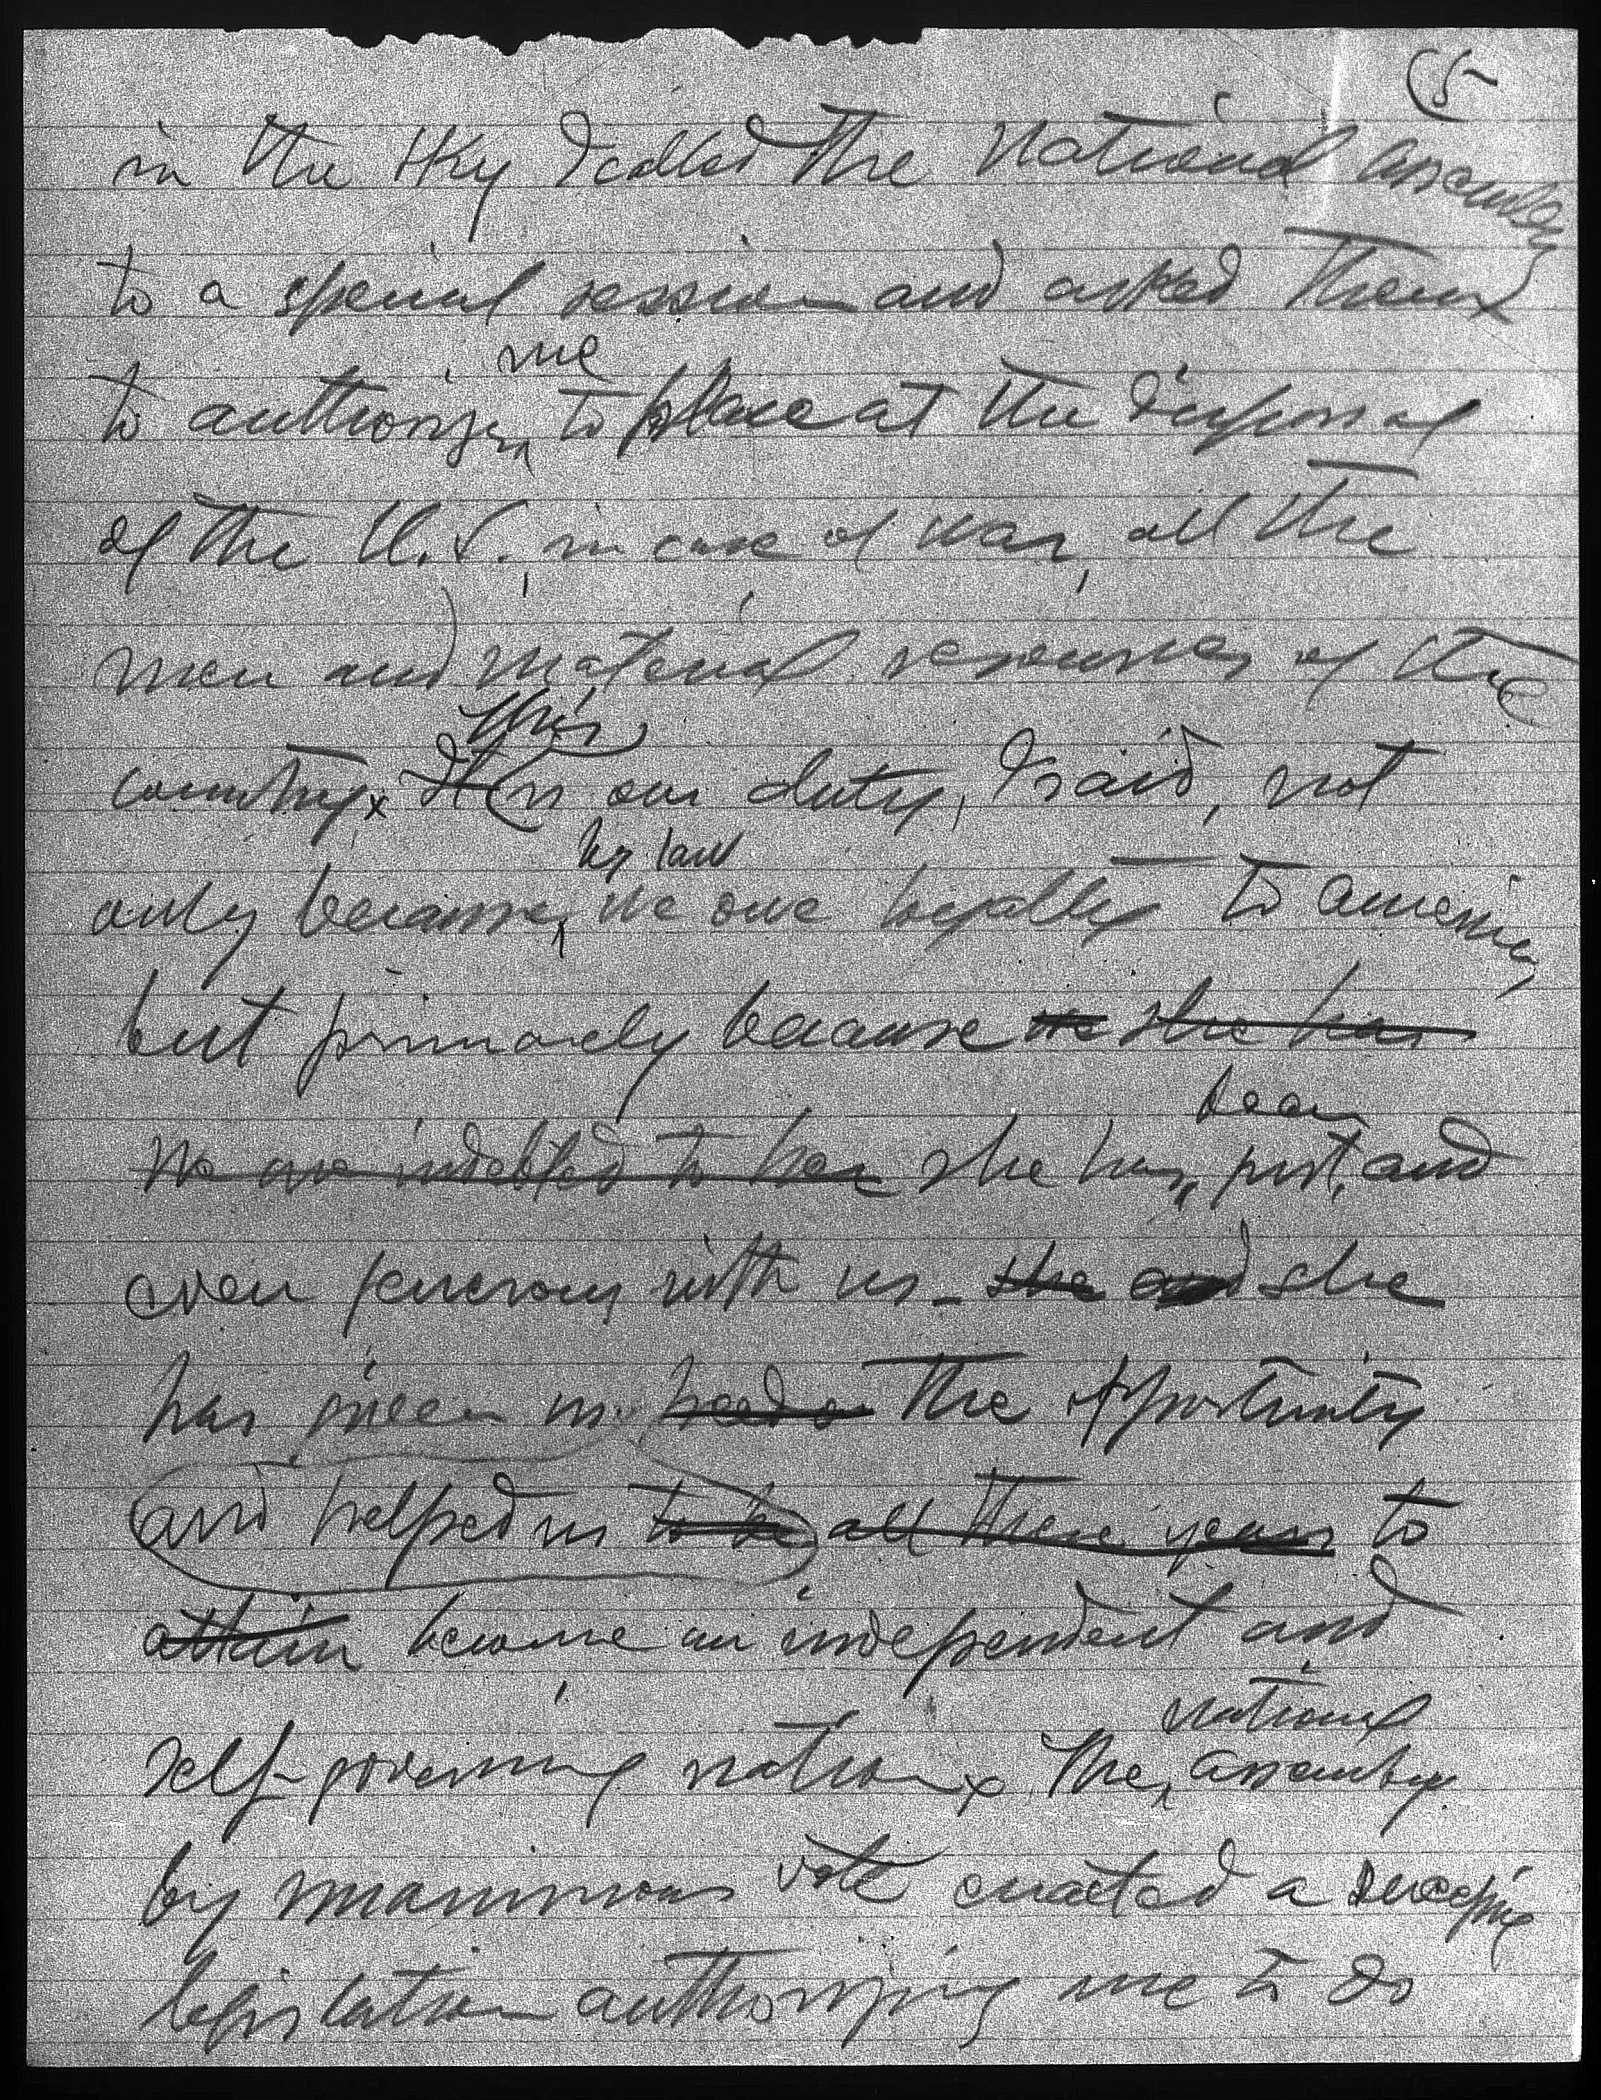 (5
in the sky I called the National Assembly
to a special session and asked them
me
to authorize to place at the disposal
of the U.S., in case of war, all the
men and material resources of the
This
country. It is our duty, I said, not
by law
only because we owe loyalty to America,
but primarily because we she has
we are indebted to her she has just, and
been
even generous with us - she and she
has given us the opportunity
and helped us to be all these years to
attain become an independent and
national
self-governing nation. The assembly
by unanimous vote enacted a sweeping
legislation authorizing me to do